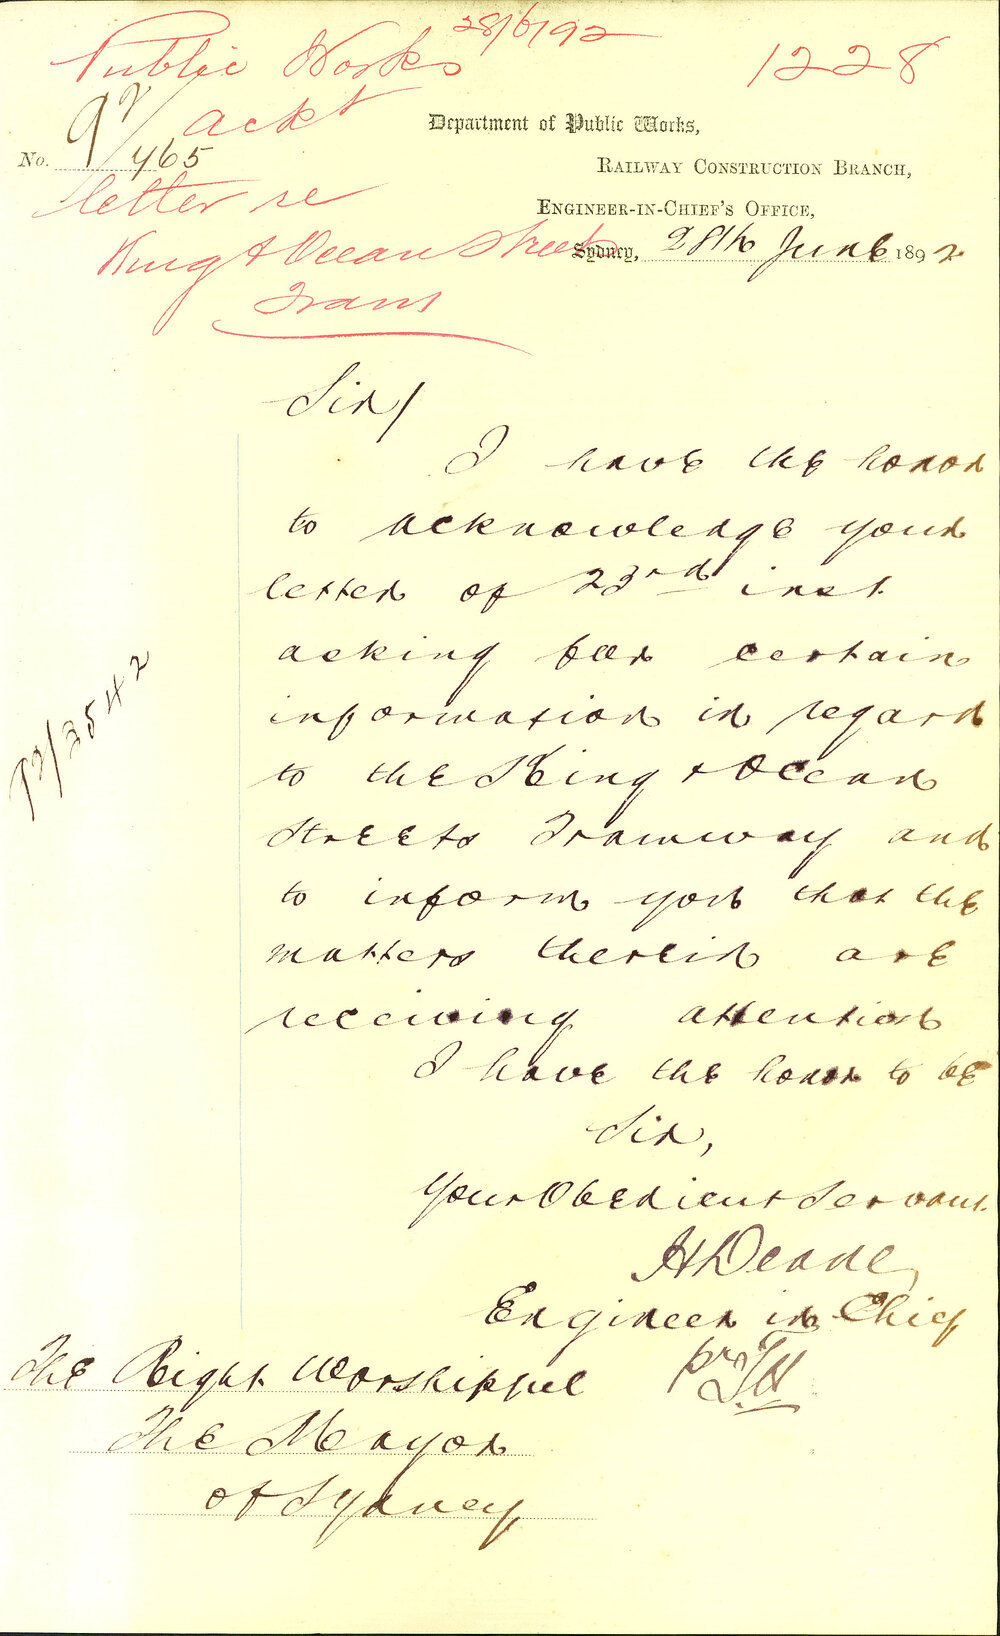 28/6/92
Public Works
1228
ackt
Department of Public Works,
No. 92/465
Railway Construction Branch,
letter re
Engineer-in-Chief's Office,
King & Ocean Street
Sydney, 28th June 1892
Tram
Sir/
I have the honor
to acknowledge your
letter of 23rd inst.
asking for certain
information in regard
to the King & Ocean
Streets Tramway and
to inform you that the
matters therein are
receiving attention
92/3542
I have the honor to be
Sir,
Your Obedient Servant.
H Deane
Engineer in Chief
pr
The Right Worshipful
The Mayor
of Sydney